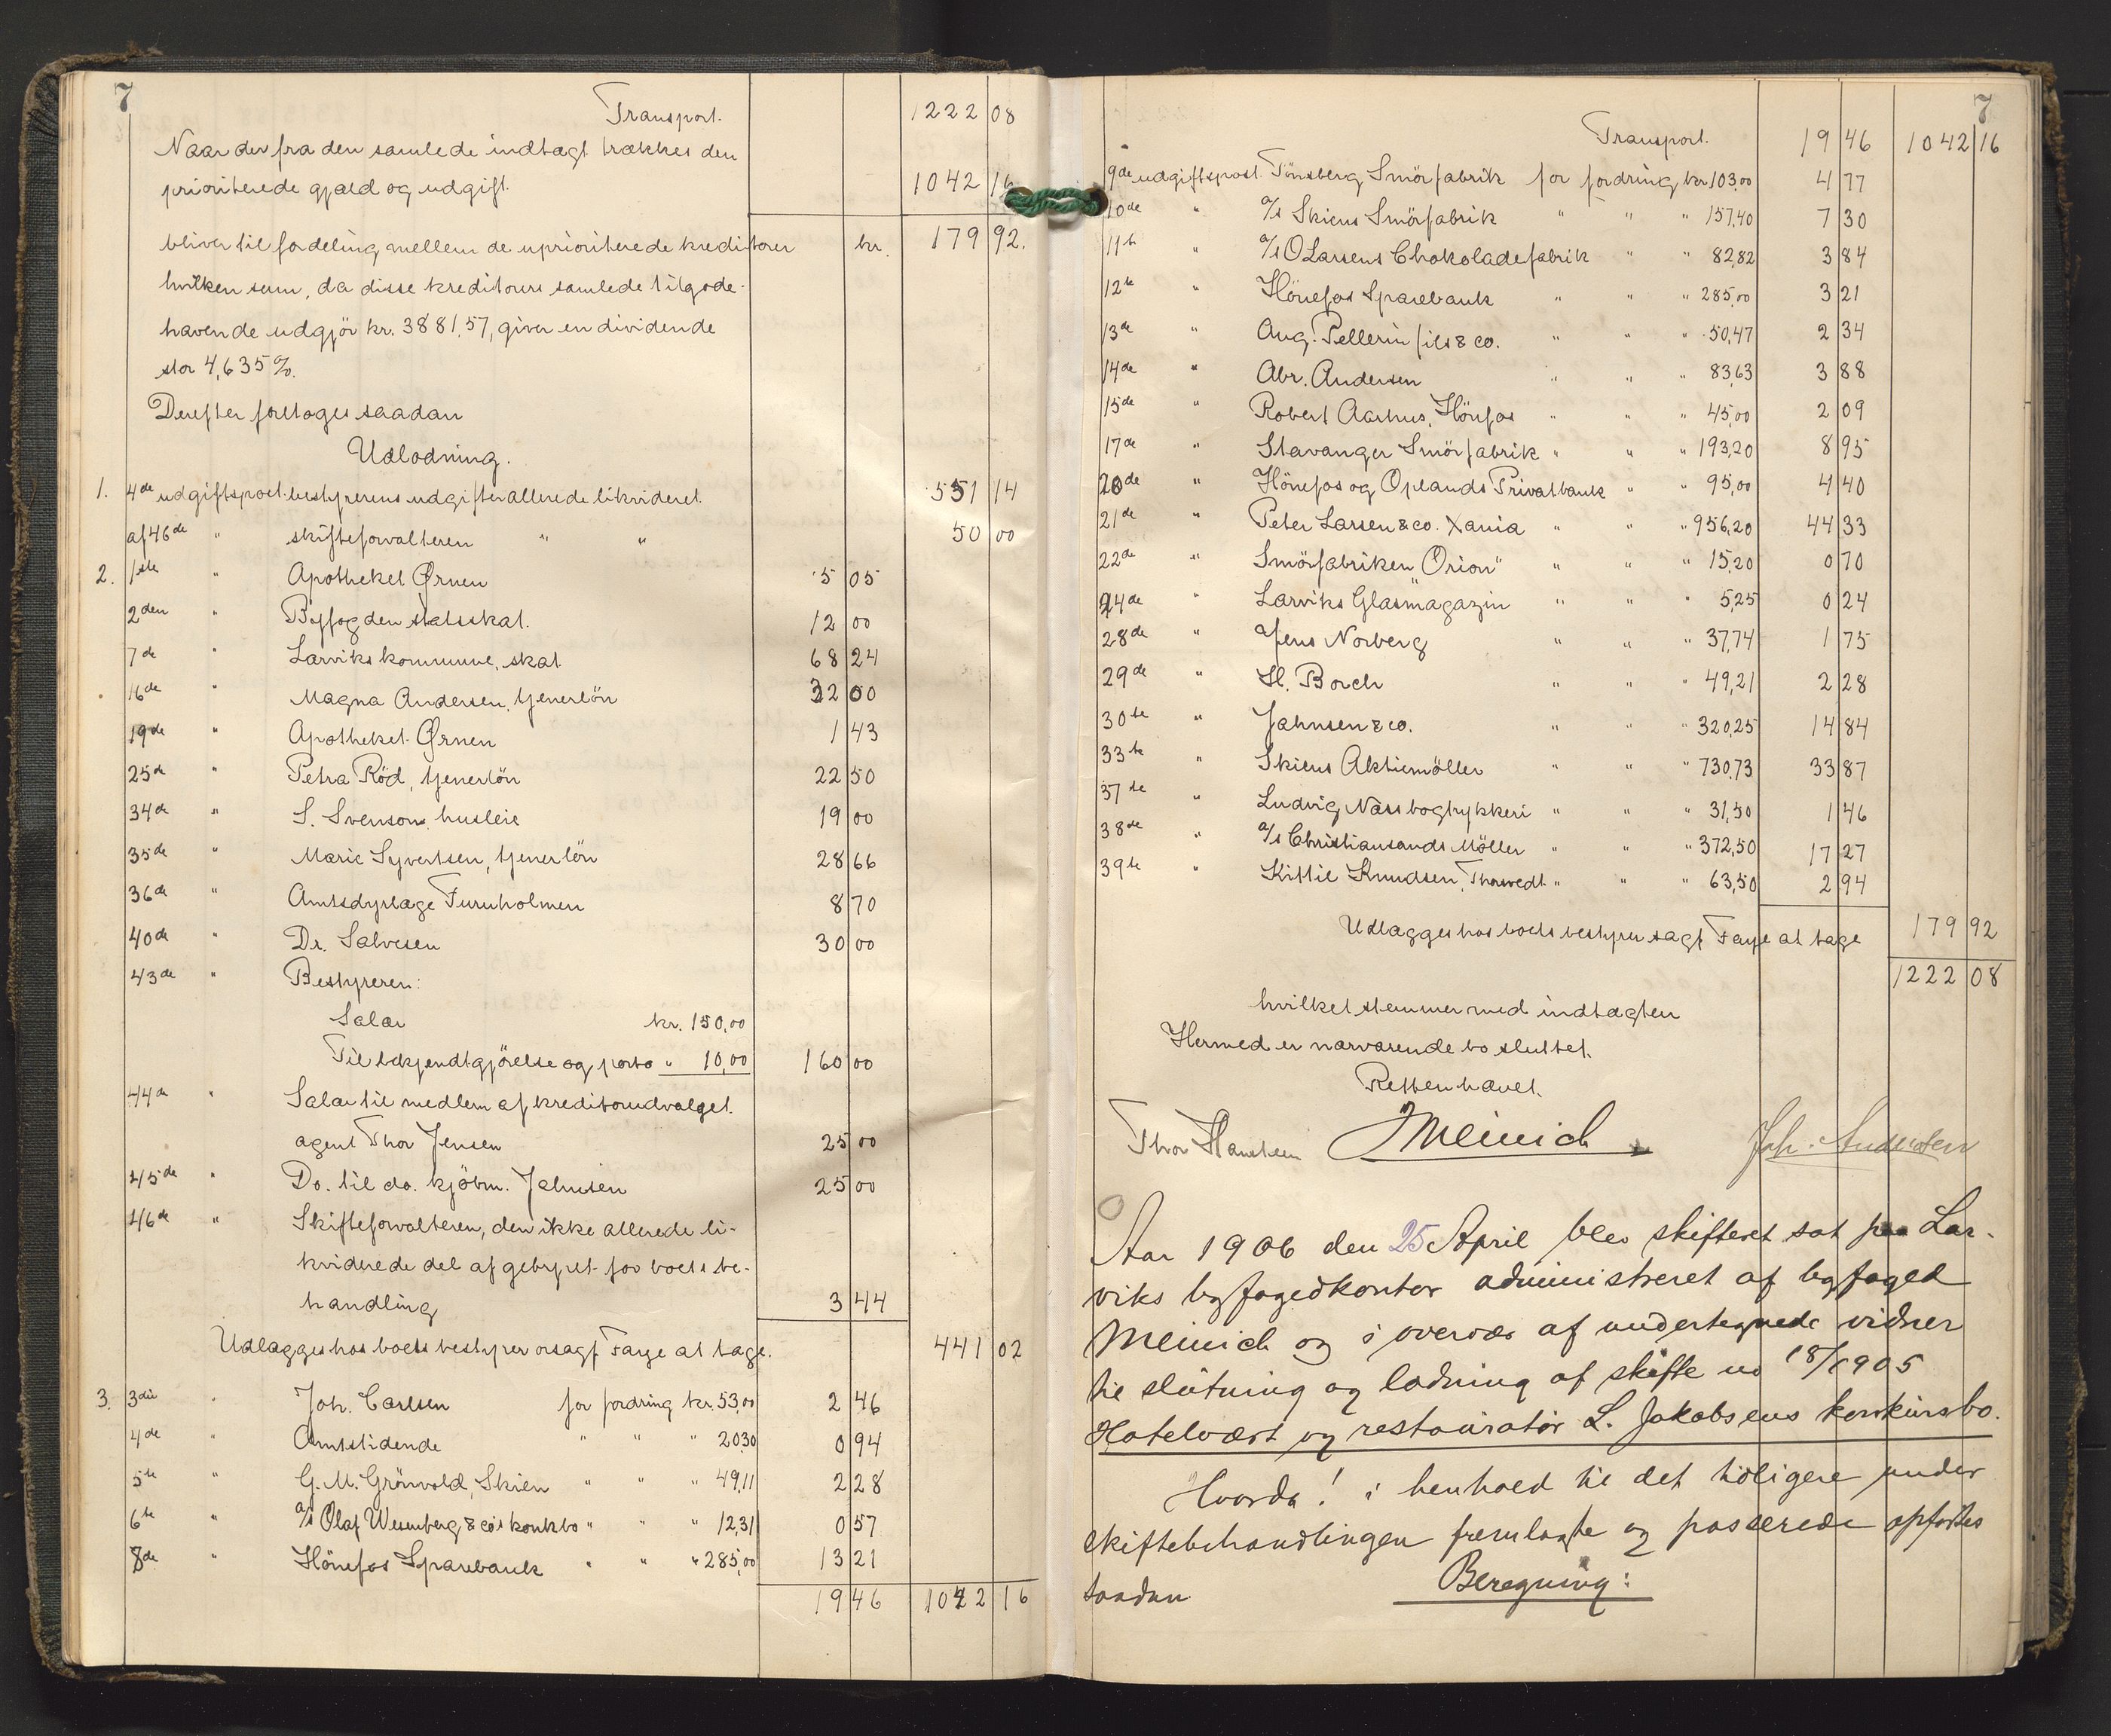 7
Transport. 1222 08
Naar der fra den samlede indtægt trækkes den
prioriterede gjæld og udgift 1042 16
bliver til fordeling mellem de uprioriterede kreditorer kr. 179 92.
hvilken sum, da disse kreditorers samlede tilgode-
havende udgjör kr. 3881.57, giver en dividende
stor 4,635 %.
Derefter foretoges saadan
Udlodning.
1. 4de udgiftspost bestyrerens udgifter allerede likvideret. 551 14
af 46de " skifteforvalteren " " 50 00
2. 1ste " Apotheket Ørnen 5 05
2den " Byfogden statsskat. 12 00
7de " Larviks kommune, skat 68 24
16de " Magna Andersen, tjenerlön 32 00
19de " Apotheket Ørnen 1 43
25de " Petra Röd, tjenerlön 22 50
34de " S. Svenson husleie 19 00
35de " Marie Syvertsen, tjenerlön 28 66
36de " Amtsdyrlæge Furuholmen 8 70
40de " Dr. Salvesen 30 00
43de " Bestyreren:
Salær kr. 150,00
Til bekjendtgjörelse og porto " 10,00 160 00
44de " Salær til medlem af kreditorudvalget
agent Thor Jensen 25 00
45de " Do. til do. kjöbm. Jahnsen 25 00
46de " Skifteforvalteren, den ikke allerede li-
kviderede del af gebyret for boets be-
handling 3 44
Udlægges hos boets bestyrer orsagf. Farye at tage. 441 02
3. 3die " Joh. Carlsen for fordring kr. 53,00 2 46
4de " Amtstidende " " " 20,30 0 94
5te " G. M. Grönvold, Skien " " " 49,11 2 28
6te " a/s Olaf Wesenberg & co's konkbo " " " 12,31 0 57
8de " Hönefos Sparebank " " " 285,00 13 21
19 46 1042 16
7
Transport. 19 46 1042 16
9de udgiftspost Tönsberg Smörfabrik for fordring kr 103,00 4 77
10de " a/s Skiens Smörfabrik " " " 157,40 7 30
11te " a/s O Larsens Chokoladefabrik " " 82,82 3 84
12te " Hönefos Sparebank " " " 285,00 3 21
13de " Aug. Pellerin fils & co. " " " 50,47 2 34
14de " Abr. Andersen " " " 83,63 3 88
15de " Robert Aarhus, Hönfos " " " 45,00 2 09
17de " Stavanger Smörfabrik " " " 193,20 8 95
20de " Hönefos og Oplands Privatbank " " 95,00 4 40
21de " Peter Larsen & co. Xania " " " 956,20 44 33
22de " Smörfabriken "Orion" " " " 15,20 0 70
24de " Larviks Glasmagazin " " " 5,25 0 24
28de " Jens Norberg " " " 37,74 1 75
29de " H. Borch " " " 49,21 2 28
30te " Jahnsen & co. " " " 320,25 14 84
33te " Skiens Aktiemöller " " " 730,73 33 87
37te " Ludvig Næss bogtrykkeri " " " 31,50 1 46
38de " a/s Christiansands Möller " " " 372,50 17 27
39te " Kittil Knudsen, Thorvedt " " " 63,50 2 94
Udlægges hos boets bestyrer sagf Farye at tage 179 92
1222 08
hvilket stemmer med indtægten
Hermed er nærværende bo sluttet.
Retten hævet.
Thor Hansteen Meinich Joh. Andersen
Aar 1906 den 25 April blev skifteret sat paa Lar-
viks byfogedkontor administreret af byfoged
Meinich og i overvær af undertegnede vidner
til slutning og lodning af skifte no 18/1905
Hotelvært og restauratør L. Jakobsens konkursbo.
Hvorda! i henhold til det tidligere under
skiftebehandlingen fremlagte og passerede opførtes
saadan Beregning: